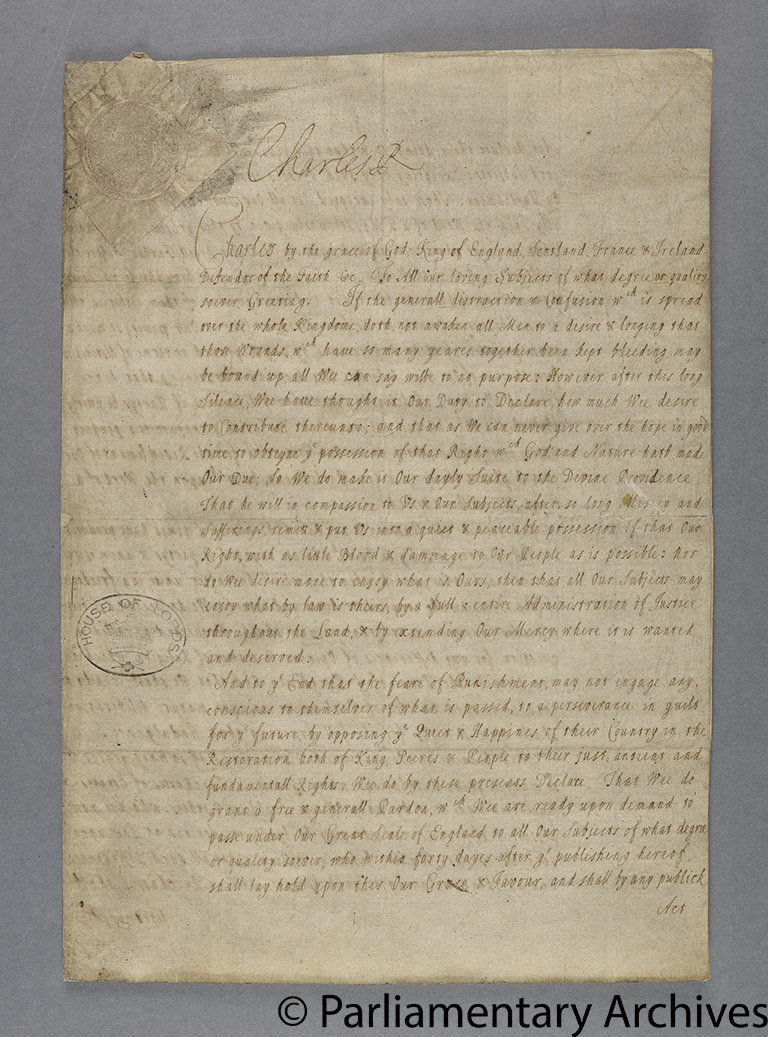 Charles R
Charles by the grace of God, King of England, Scotland, France & Ireland
Defendor of the Faith &c, To All Our loving Subjects of what degree or quality
soever, Greeting. If the generall distraction & Confusion wch is spread
over the whole Kingdome, doth not awaken all Men to a desire & longing that
those Wounds, wch have so many yeares together been kept bleeding may
be bound up, all Wee can say wilbe to no purpose: However after this long
Silence, Wee have thought it Our Duty to Declare, how much Wee desire
to Contribute thereunto; and that as We can never give over the hope in good
time to obteyne ye possession of that Right wch God and Nature hath made
Our Due, So We do make it Our dayly Suite to the Devine Providence,
That he will in compassion to Us & Our Subjects, after so long Misery and
Sufferings, remitt & put Us into a quiet & peaceable possession of that Our
Right, with as little Blood & dammage to Our People as is possible: Nor
do Wee desire more to enjoy what is Ours, then that all Our Subjects may
enjoy what by law is theirs, by a full & entire Administration of Justice
throughout the Land, & by extending Our Mercy where it is wanted
and deserved.
And to ye End that the feare of Punishment may not engage any,
conscious to themselves of what is passed, to a perseverance in guilt
for ye future, by opposing ye Quiet & Happines of their Country in the
Restoration both of King, Peeres & People to their just, antient and
fundamentall Rights, Wee do by these presents Declare, That Wee do
grant a free & generall Pardon, wch Wee are ready upon demand to
passe under Our Great Seale of England, to all Our Subjects of what degree
or quality soever, who within forty dayes after ye publishing hereof
shall lay hold upon this Our Grace & Favour, and shall by any publick
Act
HOUSE OF LORDS
© Parliamentary Archives